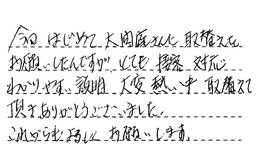 今回はじめて大田原さんに取替えを
お願いしたんですが、とても接客対応
わかりやすい説明 大変熱い中取替えて
頂きありがとうございました。
これからもよろしくお願いします。